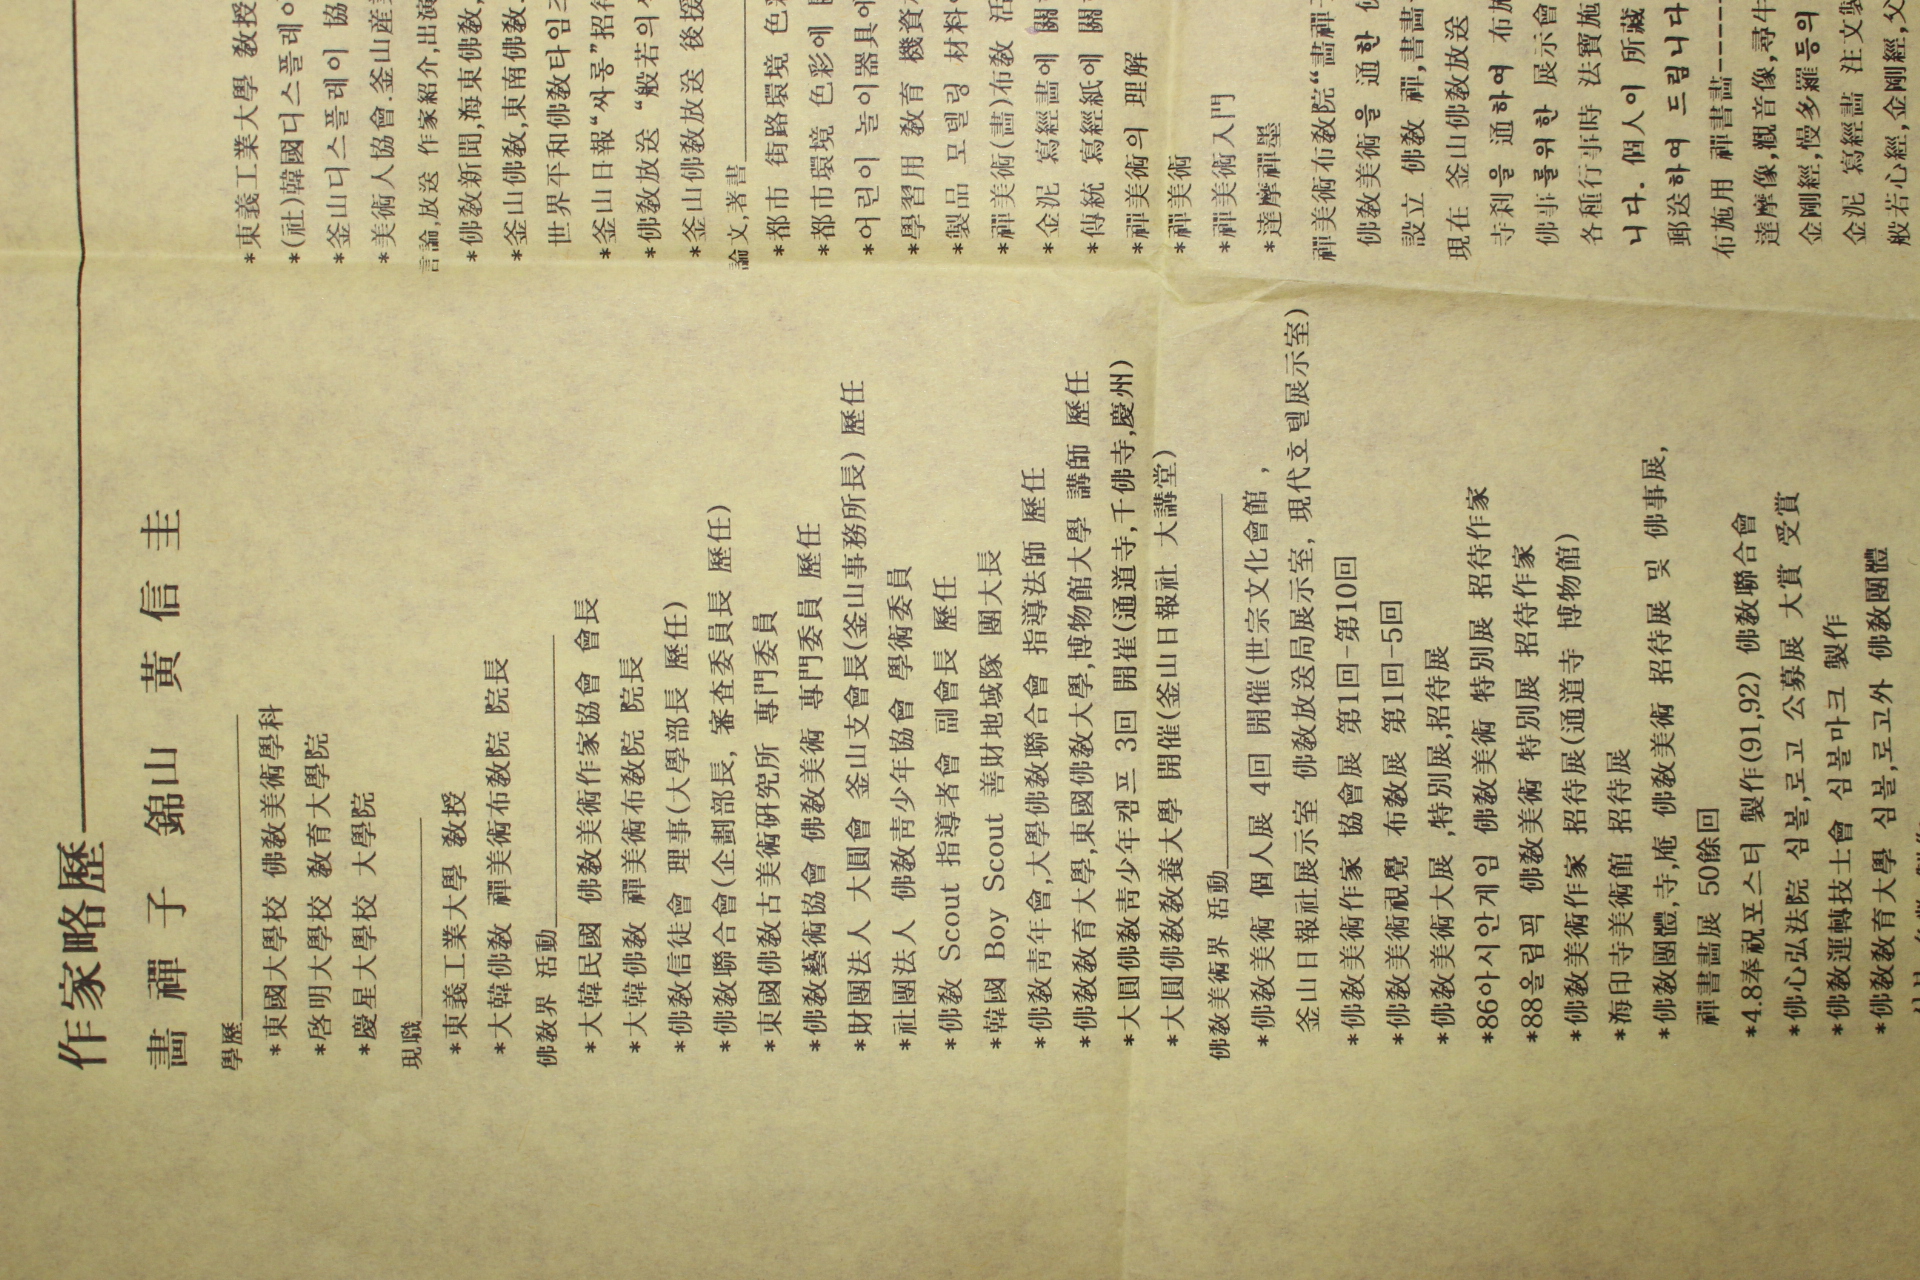 作家略歷
畵禪子 錦山 黃信圭
學歷
*東國大學校 佛敎美術學科
*啓明大學校 敎育大學院
*慶星大學校 大學院
現職
*東義工業大學 敎授
*大韓佛敎 禪美術布敎院 院長
佛敎界 活動
*大韓民國 佛敎美術作家協會 會長
*大韓佛敎 禪美術布敎院 院長
*佛敎信徒會 理事(大學部長 歷任)
*佛敎聯合會(企劃部長, 審査委員長 歷任)
*東國佛敎古美術硏究所 專門委員
*佛敎藝術協會 佛敎美術 專門委員 歷任
*財團法人 大圓會 釜山支會長(釜山事務所長) 歷任
*社團法人 佛敎靑少年協會 學術委員
*佛敎 Scout 指導者會 副會長 歷任
*韓國 Boy Scout 善財地域隊 團大長
*佛敎靑年會,大學佛敎聯合會 指導法師 歷任
*佛敎敎育大學,東國佛敎大學,博物館大學 講師 歷任
*大圓佛敎靑少年캠프 3回 開催(通道寺,千佛寺,慶州)
*大圓佛敎敎養大學 開催(釜山日報社 大講堂)
佛敎美術界 活動
*佛敎美術 個人展 4回 開催(世宗文化會館 ,
釜山日報社展示室 佛敎放送局展示室, 現代호텔展示室)
*佛敎美術作家 協會展 第1回-第10回
*佛敎美術視覺 布敎展 第1回-5回
*佛敎美術大展 ,特別展,招待展
*86아시안게임 佛敎美術 特別展 招待作家
*88올림픽 佛敎美術 特別展 招待作家
*佛敎美術作家 招待展(通道寺 博物館)
*海印寺美術館 招待展
*佛敎團體,寺,庵 佛敎美術 招待展 및 佛事展,
禪書畵展 50餘回
*4.8奉祝포스터 製作(91,92) 佛敎聯合會
*佛心弘法院 심볼,로고 公募展 大賞 受賞
*佛敎運轉技士會 심볼마크 製作
*佛敎敎育大學 심볼,로고外 佛敎團體
*東義工業大學 敎授
*(社)韓國디스플레이
*釜山디스플레이 協
*美術人協會.釜山産業
言論,放送 作家紹介,出演
*佛敎新聞,海東佛敎,
*釜山佛敎,東南佛敎
世界平和佛敎타임즈
*釜山日報“싸롱”招待
*佛敎放送 “般若의
*釜山佛敎放送 後援
論文,著書
*都市 街路環境 色彩
*都市環境 色彩에
*어린이 놀이器具에
*學習用 敎育 機資
*製品 모델링 材料
*禪美術(畵)布敎 活
*金泥 寫經畵에 關
*傳統 寫經紙에 關
*禪美術의 理解
*禪美術
*禪美術入門
*達摩禪墨
禪美術布敎院“畵禪子
佛敎美術을 通한
設立 佛敎 禪,書畵
現在 釜山佛敎放送
寺刹을 通하여 布施
佛事를위한 展示會
各種行事時 法寶施
니다. 個人이 所藏
郵送하여 드립니다
布施用 禪書畵-----
達摩像,觀音像,尋牛
金剛經,慢多羅등의
金泥 寫經畵 注文製
般若心經,金剛經,父